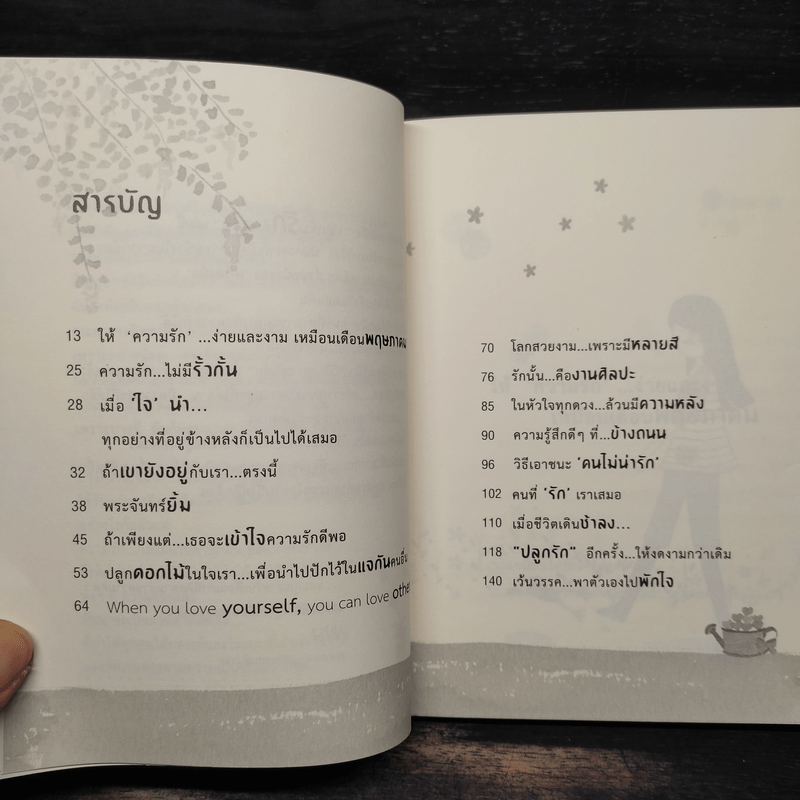 สารบัญ
13 ให้ ‘ความรัก’ ...ง่ายและงาม เหมือนเดือนพฤษภาคม
25 ความรัก...ไม่มีรั้วกั้น
28 เมื่อ ‘ใจ’ นำ...
ทุกอย่างที่อยู่ข้างหลังก็เป็นไปได้เสมอ
32 ถ้าเขายังอยู่กับเรา...ตรงนี้
38 พระจันทร์ยิ้ม
45 ถ้าเพียงแต่...เธอจะเข้าใจความรักดีพอ
53 ปลูกดอกไม้ในใจเรา...เพื่อนำไปปักไว้ในแจกันคนอื่น
64 When you love yourself, you can love
70 โลกสวยงาม...เพราะมีหลายสี
76 รักนั้น...คืองานศิลปะ
85 ในหัวใจทุกดวง...ล้วนมีความหลัง
90 ความรู้สึกดีๆ ที่...ข้างถนน
96 วิธีเอาชนะ ‘คนไม่น่ารัก’
102 คนที่ ‘รัก’ เราเสมอ
110 เมื่อชีวิตเดินช้าลง...
118 “ปลูกรัก” อีกครั้ง...ให้งดงามกว่าเดิม
140 เว้นวรรค...พาตัวเองไปพักใจ